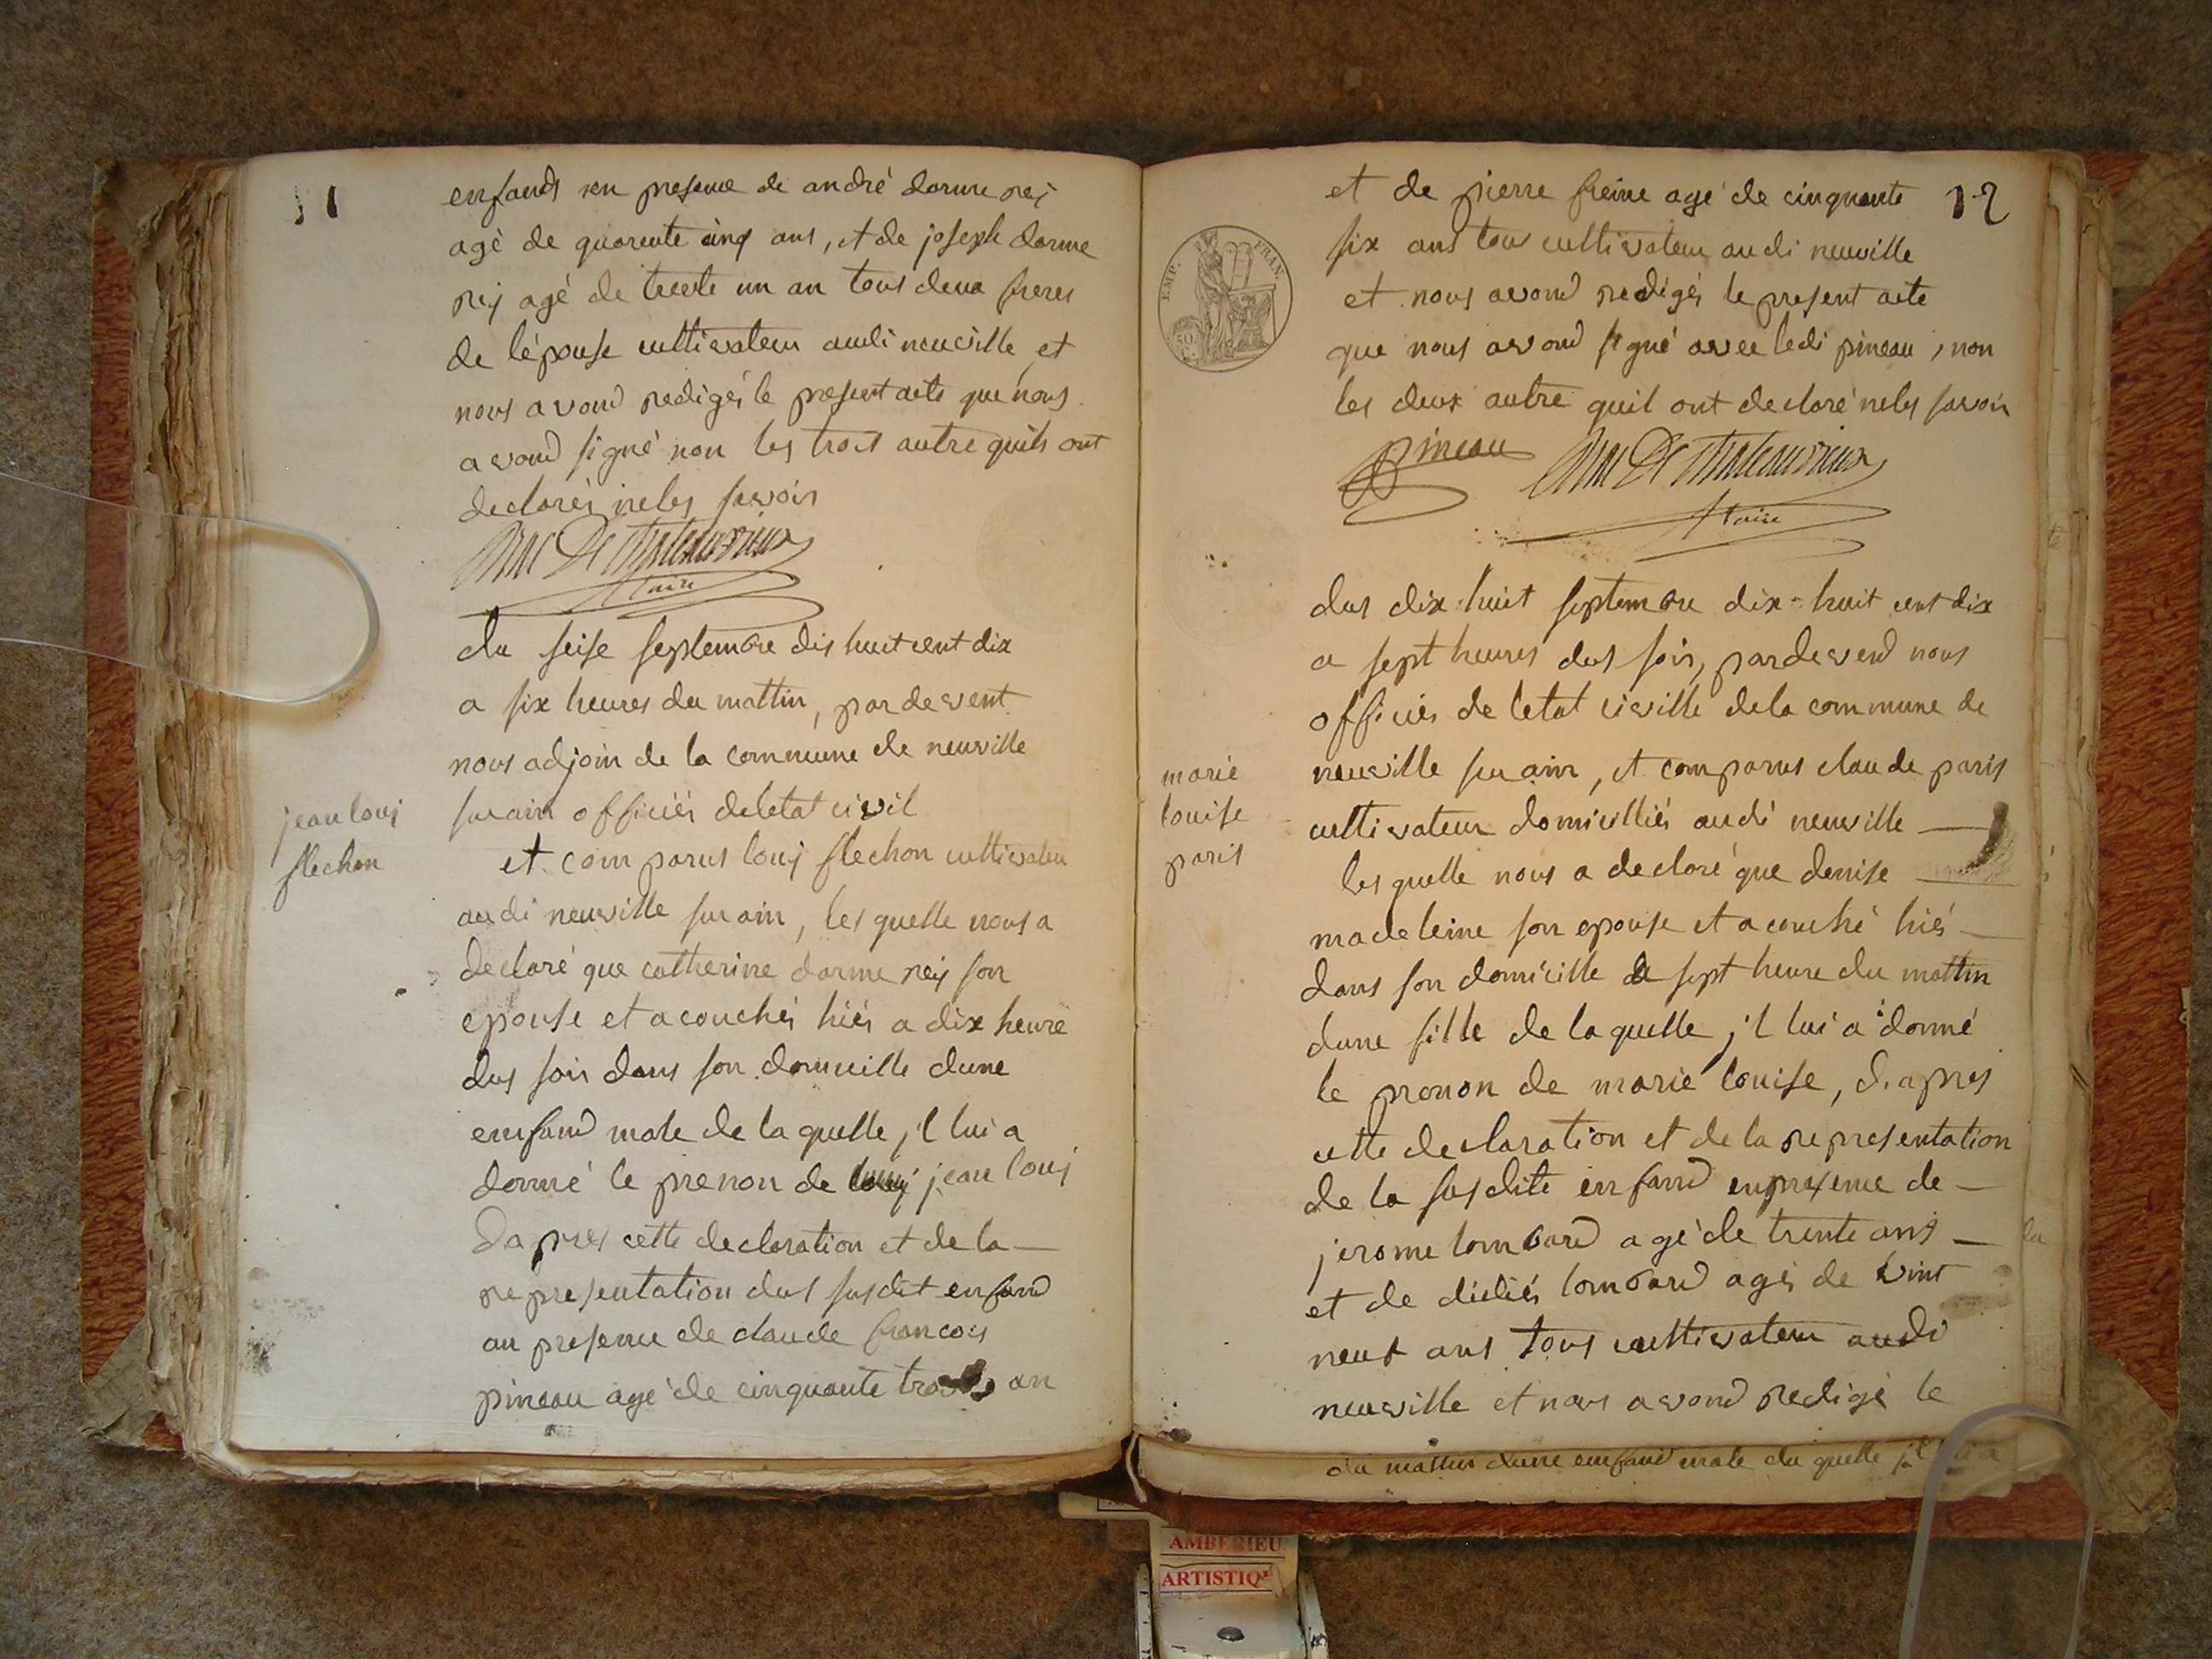 11
enfands en presence de andré dorme rey
agé de quarente cinq ans, et de joseph dorme
rey agé de trente un an tous deux freres
de lépouse cultivateur audi neuville et
nous avond redigés le present acte que nous
avond signé non les trois autre quils ont
declarés neles savoir
maire
du seise septembre dis huit cent dix
a six heures du mattin, pardevent
nous adjoin de la commune de neuville
sur ain officiés deletat civil
jean louj
flechon
et comparus louj flechon cultivateur
audi neuville sur ain, les quelle nous a
declaré que catherine dorme rey son
epouse et acouchés hiés a dix heure
dus soir dans son domicille dune
enfand male de la quelle j'l lui a
donné le prenon de jean louj
Dapres cette declaration et de la
representation dus susdit enfand
an presence de claude francois
pineau agé de cinquante trois an
12
EMP. FRAN.
50 C.
et de pierre freine agé de cinquante
six ans tous cultivateur audi neuville
et nous avond redigés le present acte
que nous avond signé avec ledi pineau, non
les deux autre quil ont declaré neles savoir
pineau
maire
dus dix-huit septembre dix-huit cent dix
a sept heures dus soir, pardevend nous
officiés de letat civille dela commune de
marie
louise
paris
neuville sur ain, et comparus claude paris
cultivateur domicilliés audi neuville
les quelle nous a declaré que denise
madeleine son epouse et acouché hiés
dans son domicille a sept heure du mattin
dune fille de laquelle j'l lui a donné
le pronon de marie louise, dapres
cette declaration et de la representation
de la susdite enfand enpresence de
jerome lombard agé de trente ans
et de didiés lombard agés de vint
neuf ans tous cultivateur audi
neuville et nous avond redigé le
du mattin dune enfand male du quelle j'l lui a
AMBERIEU
ARTISTIQ